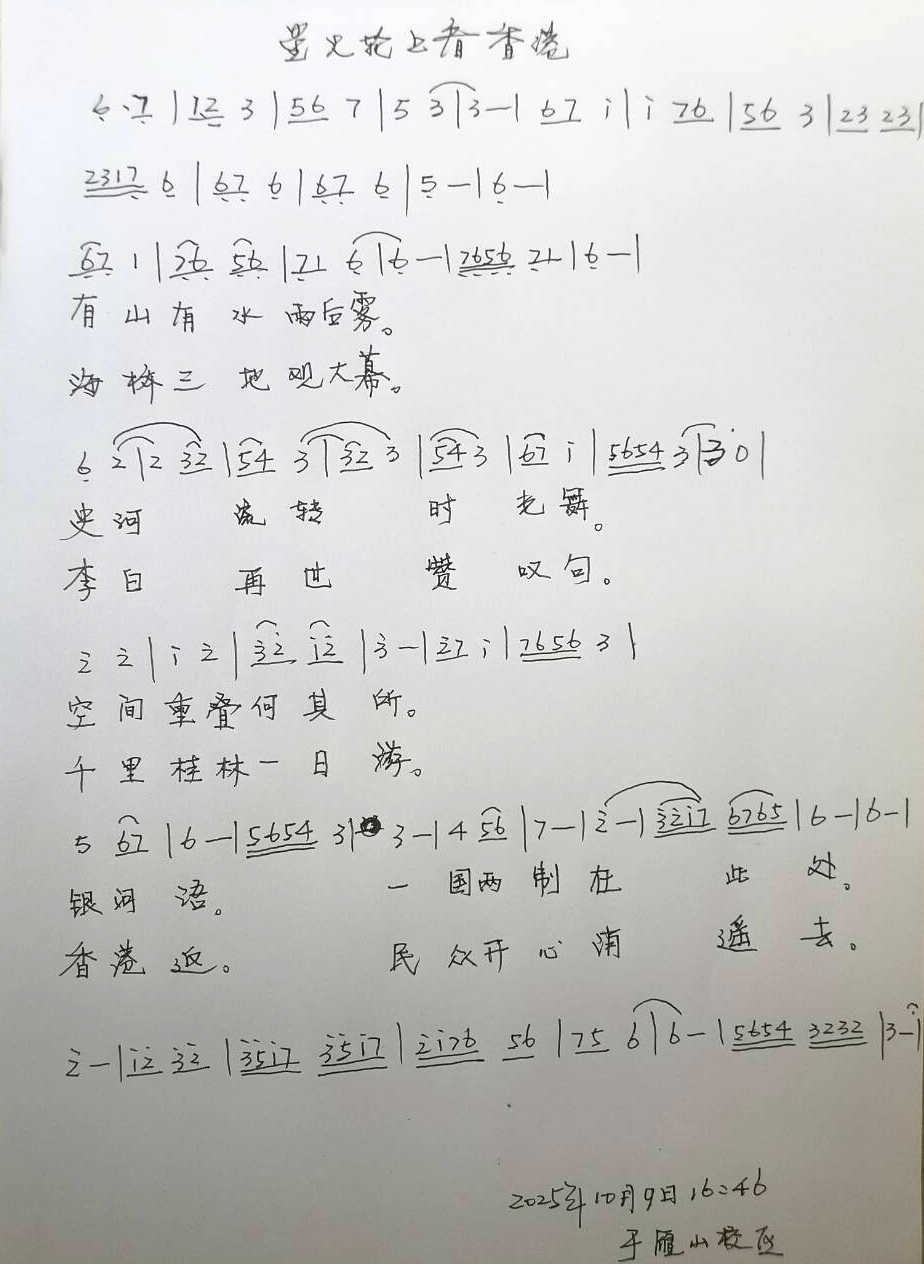 星火轮上看香港
6·7|12 3|56 7|5 3|3-|67 i|i 76|56 3|23 23|
2317 6|67 6|67 6|5-|6-|
67 1|76 56|71 6|6-|7656 71|6-|
有山有水雨后雾。
海桥三地观大幕。
6 2|2 32|54 3|32 3|54 3|67 i|5654 3|3 0|
史河流转时光舞。
李白再世赞叹句。
2 2|i 2|32 i2|3-|27 i|7656 3|
空间重叠何其所。
千里桂林一日游。
5 67|6-|5654 3|3-|4 56|7-|2-|32i7 6765|6-|6-|
银河语。一国两制在此处。
香港返。民众开心消遥去。
2-|i2 32|35i7 35i7|2i76 56|75 6|6-|5654 3232|3-|
2025年10月9日16:46
于雁山校区